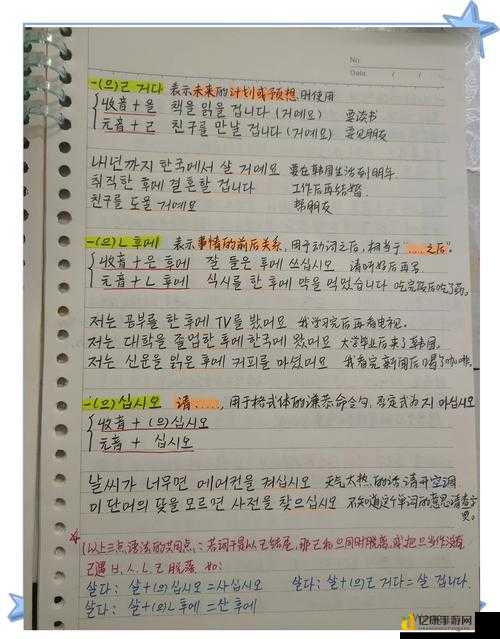 No.
Date. / /
-(으)ㄹ 거다 表示未来的计划或予想时使用
收音+을 책을 읽을 겁니다 (거예요) 要读书
元音+ㄹ 친구를 만날 겁니다 (거예요) 要见朋友
내년까지 한국에서 살 거예요 要在韩国生活到明年
취직한 후에 결혼할 겁니다 工作后再结婚
친구를 도울 거예요 帮朋友
-(으)ㄴ 후에 表示事情的前后关系,用于动词之后,相当于"……之后"。
收音+은 후에 잘 들은 후에 쓰십시오 请听好后再写
元音+ㄴ 후에 식사를 한 후에 약을 먹었습니다 吃完饭后吃了药。
저는 공부를 한 후에 TV를 봤어요 我学习完后再看电视。
저는 대학을 졸업한 후에 한국에 왔어요 大学毕业后来了韩国。
저는 신문을 읽은 후에 커피를 마셨어요 我看完新闻后喝了咖啡。
-(으)십시오 请……,用于格式体的谦恭命令句,否定式为지 마십시오
收音+(으)십시오
元音+십시오
날씨가 너무면 에어컨을 켜십시오 天气太热的话请开空调
이 단어의 뜻을 모르면 사전을 찾으십시오 不知道这个单词的意思请查字
典。
(以上三点语法的共同点:若词干是以ㄹ结尾,那ㄹ和으同时脱离,或把으当作没有
ㄹ遇ㅂ.ㅅ.ㄴ,ㄹ脱落 如:
살다: 살+(으)십시오=사십시오 살다: 살+(으)ㄹ 거다=살 겁니다.
살다: 살+(으)ㄴ 후에=산 후에
亿康手游网